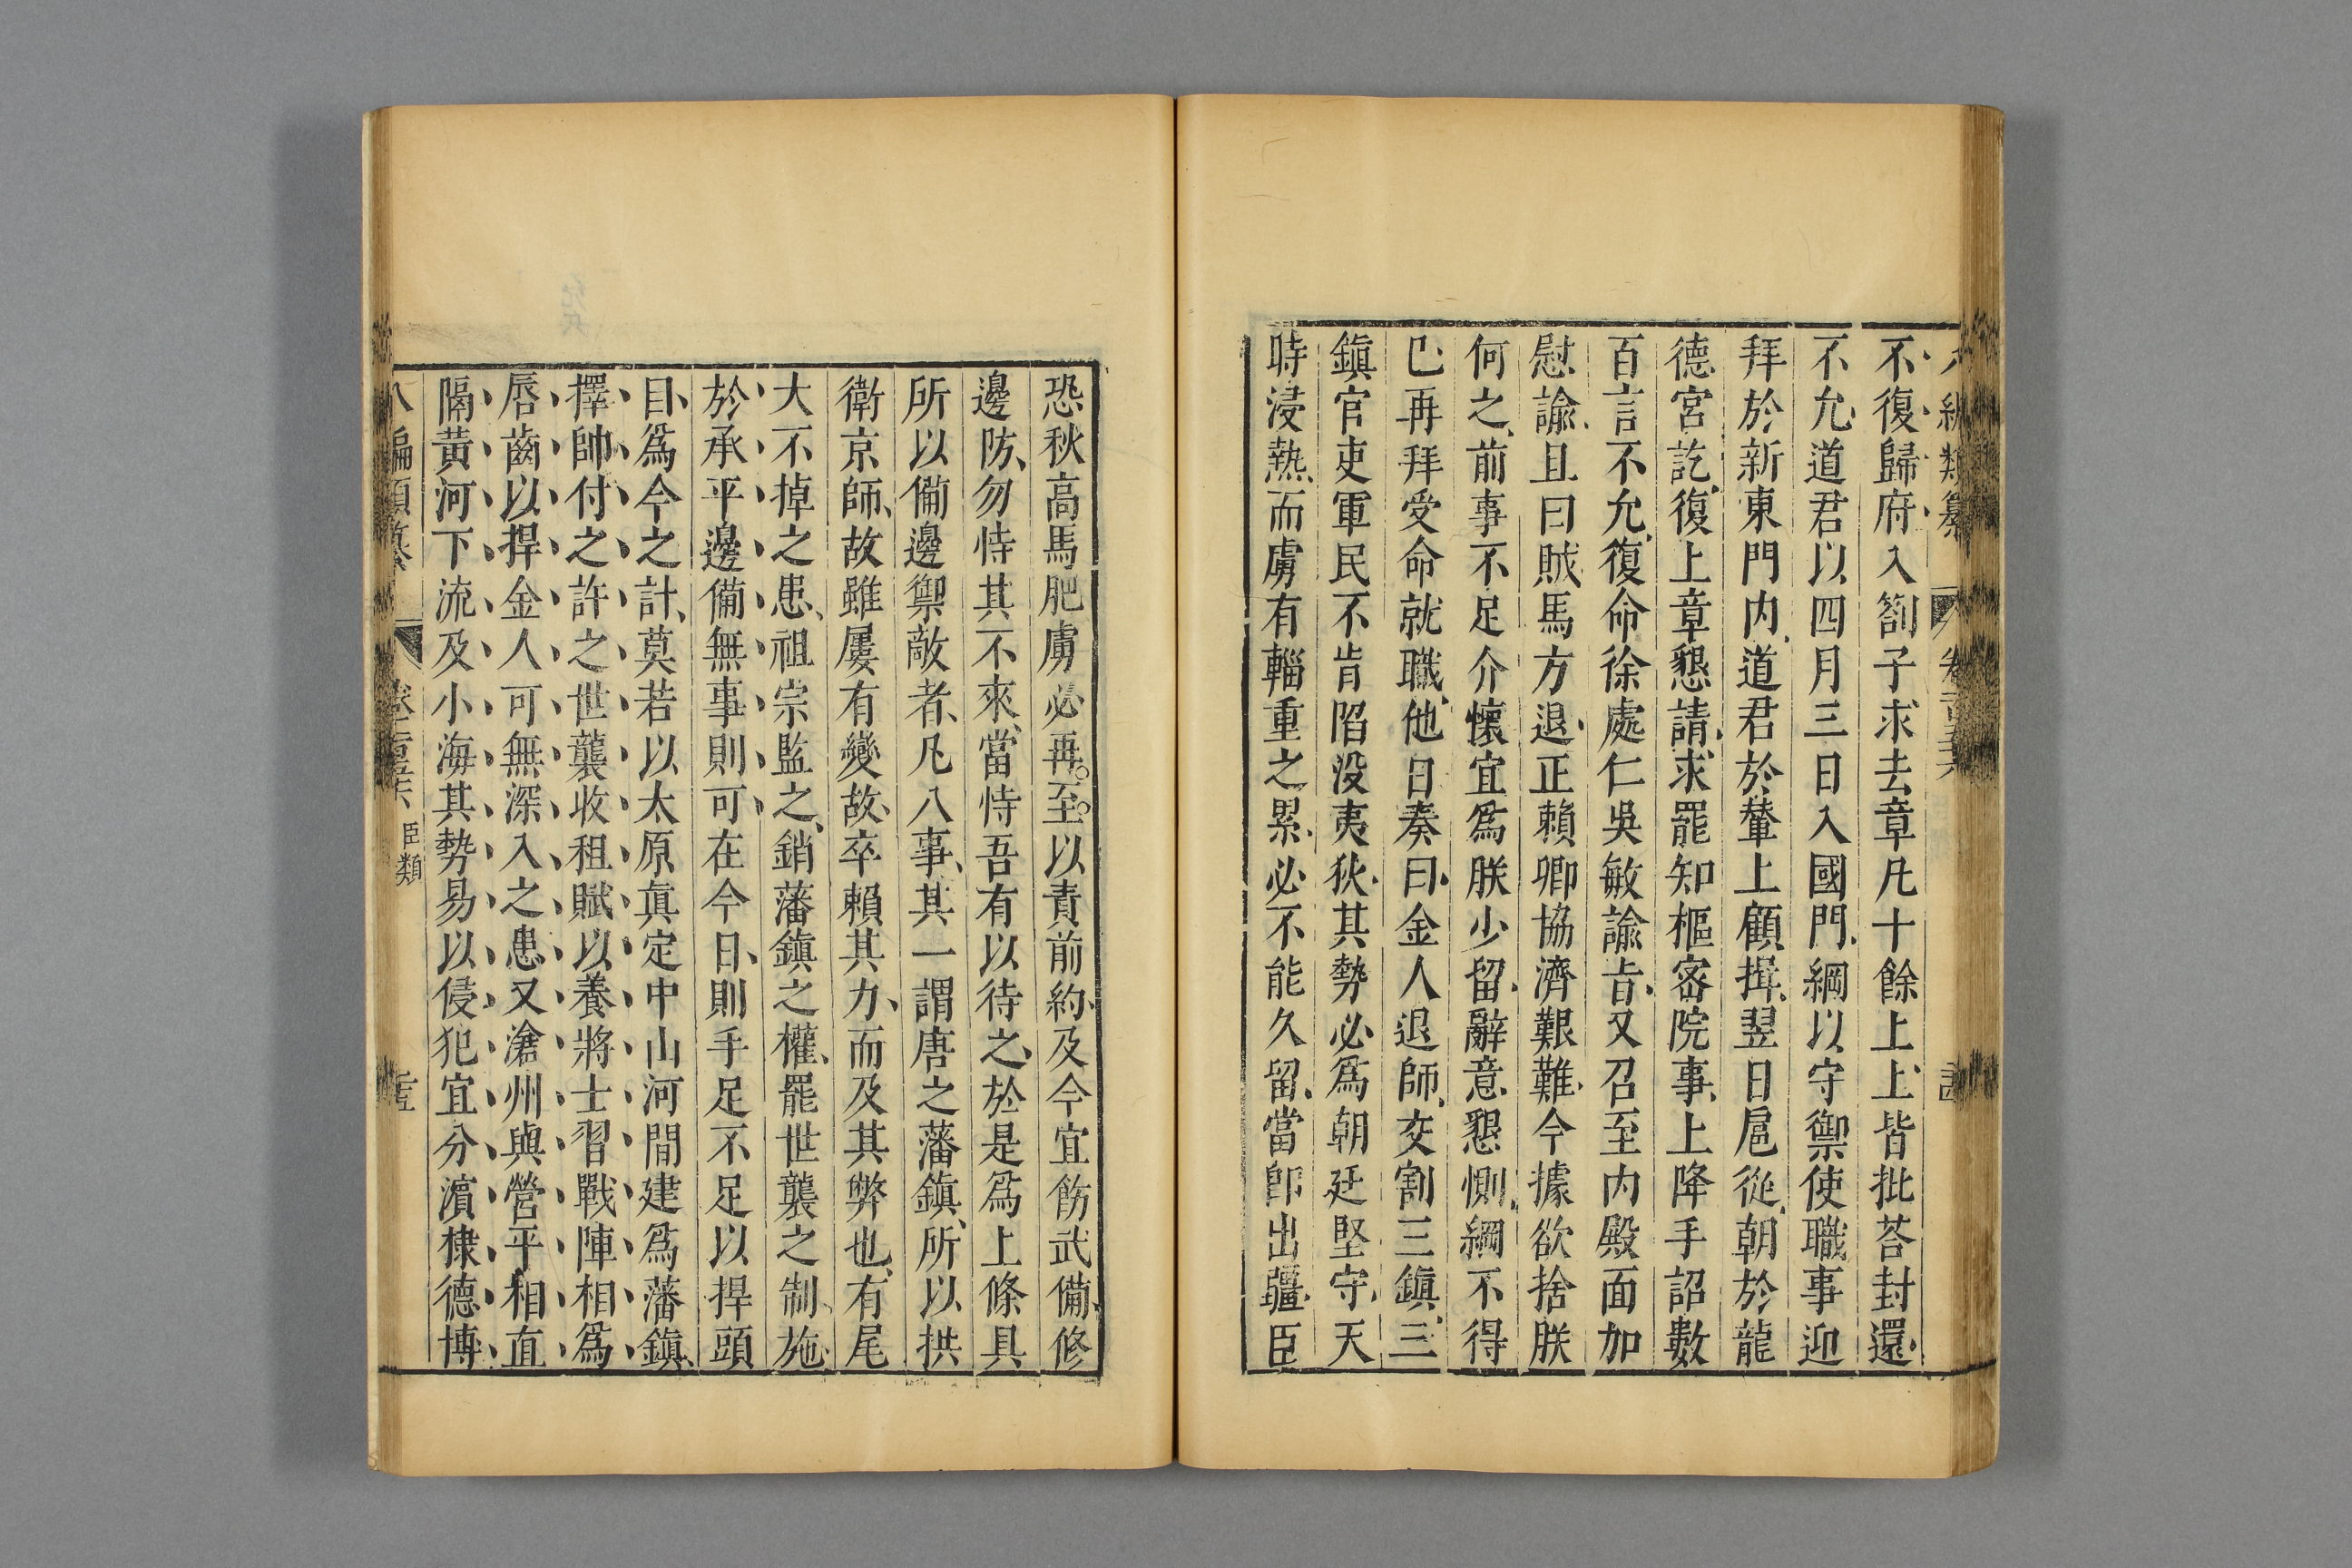 八編類纂 卷百三六
不復歸府入劄子求去章凡十餘上上皆批荅封還
不允道君以四月三日入國門綱以守禦使職事迎
拜於新東門內道君於輦上顧揖翌日扈從朝於龍
德宮訖復上章懇請求罷知樞密院事上降手詔數
百言不允復命徐處仁吳敏諭旨又召至內殿面加
慰諭且曰賊馬方退正賴卿協濟艱難今據欲捨朕
何之前事不足介懷宜爲朕少留辭意懇惻綱不得
已再拜受命就職他日奏曰金人退師交割三鎮三
鎮官吏軍民不肯陷没夷狄其勢必爲朝廷堅守天
時浸熱而虜有輜重之累必不能久留當卽出疆臣
恐秋高馬肥虜必再至以責前約及今宜飭武備修
邊防勿恃其不來當恃吾有以待之於是爲上條具
所以備邊禦敵者凡八事其一謂唐之藩鎮所以拱
衛京師故雖屢有變故卒賴其力而及其弊也有尾
大不掉之患祖宗監之銷藩鎮之權罷世襲之制施
於承平邊備無事則可在今日則手足不足以捍頭
目爲今之計莫若以太原眞定中山河間建爲藩鎮
擇帥付之許之世襲收租賦以養將士習戰陣相爲
唇齒以捍金人可無深入之患又滄州與營平相直
隔黃河下流及小海其勢易以侵犯宜分濵棣德博
八編類纂 臣類